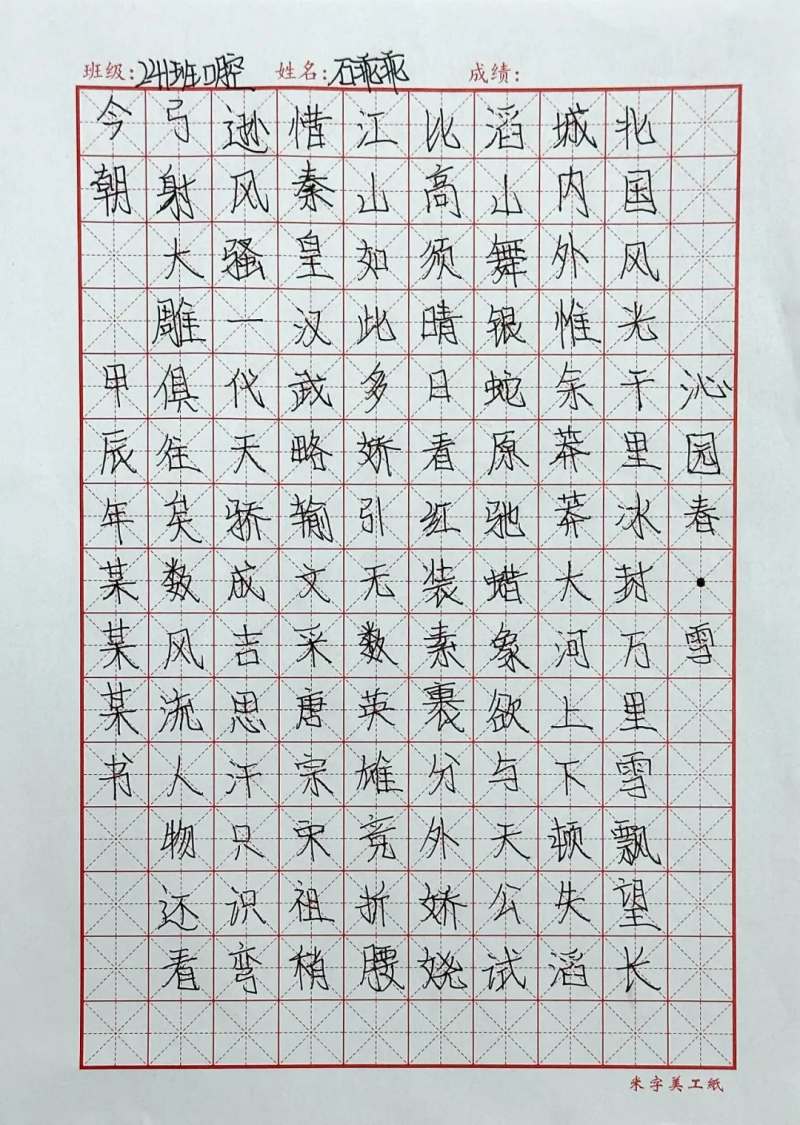 班级:241班口腔 姓名:石乖乖 成绩:
沁园春·雪
北国风光千里冰封万里雪飘望长
城内外惟余莽莽大河上下顿失滔
滔山舞银蛇原驰蜡象欲与天公试
比高须晴日看红装素裹分外娇娆
江山如此多娇引无数英雄竞折腰
惜秦皇汉武略输文采唐宗宋祖稍
逊风骚一代天骄成吉思汗只识弯
弓射大雕俱往矣数风流人物还看
今朝 甲辰年某某某书
米字美工纸